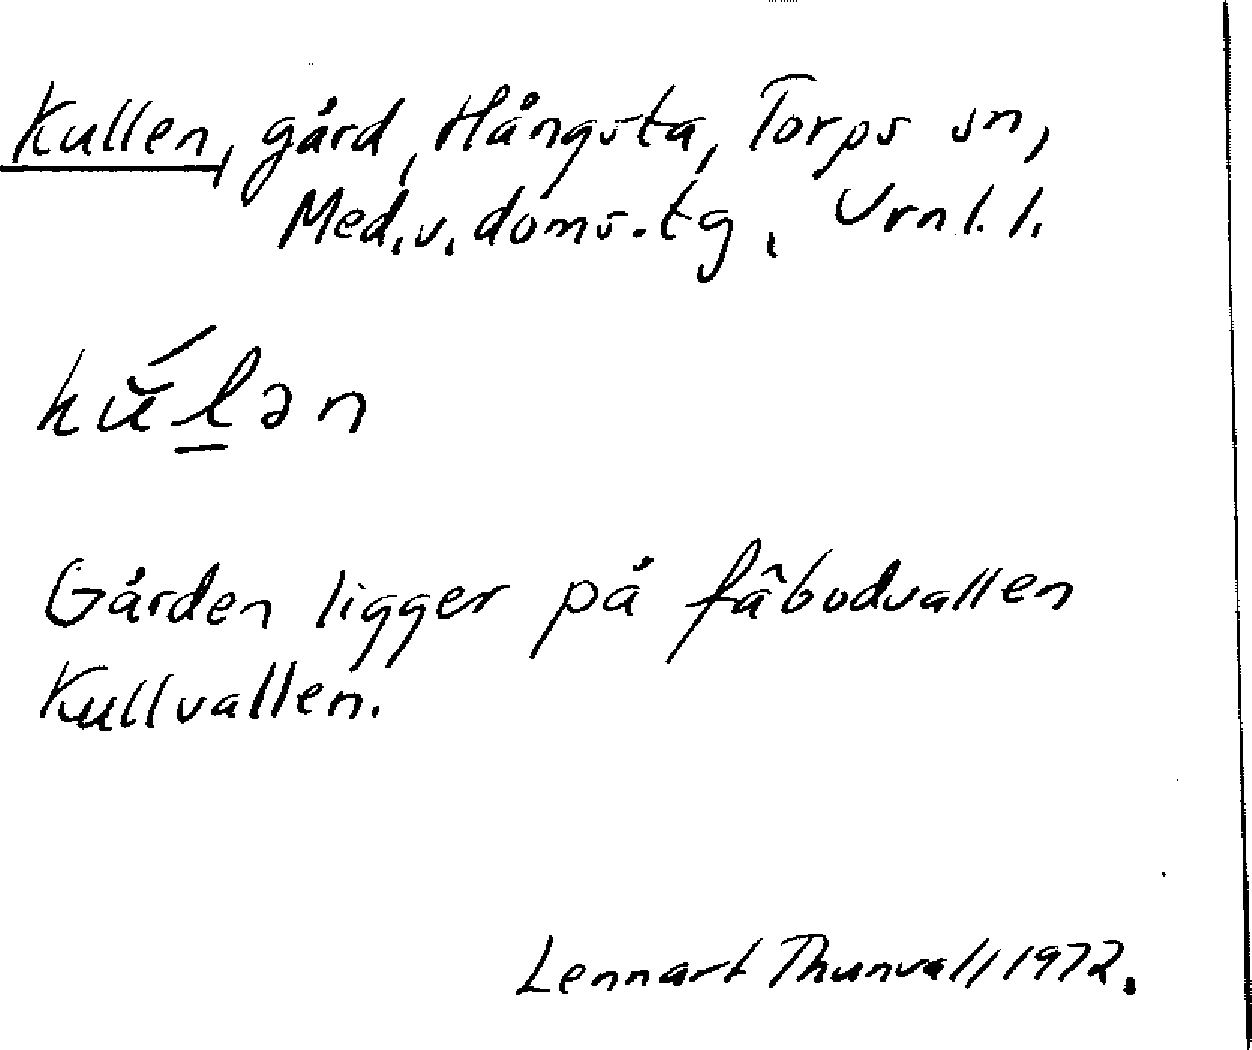 Kullen, gård, Hångsta, Torps sn,
Med.v.doms.tg. Vrnl.l.
kŭ́l̲ən
Gården ligger på fâbodvallen
Kullvallen.
Lennart Thunvall 1972.